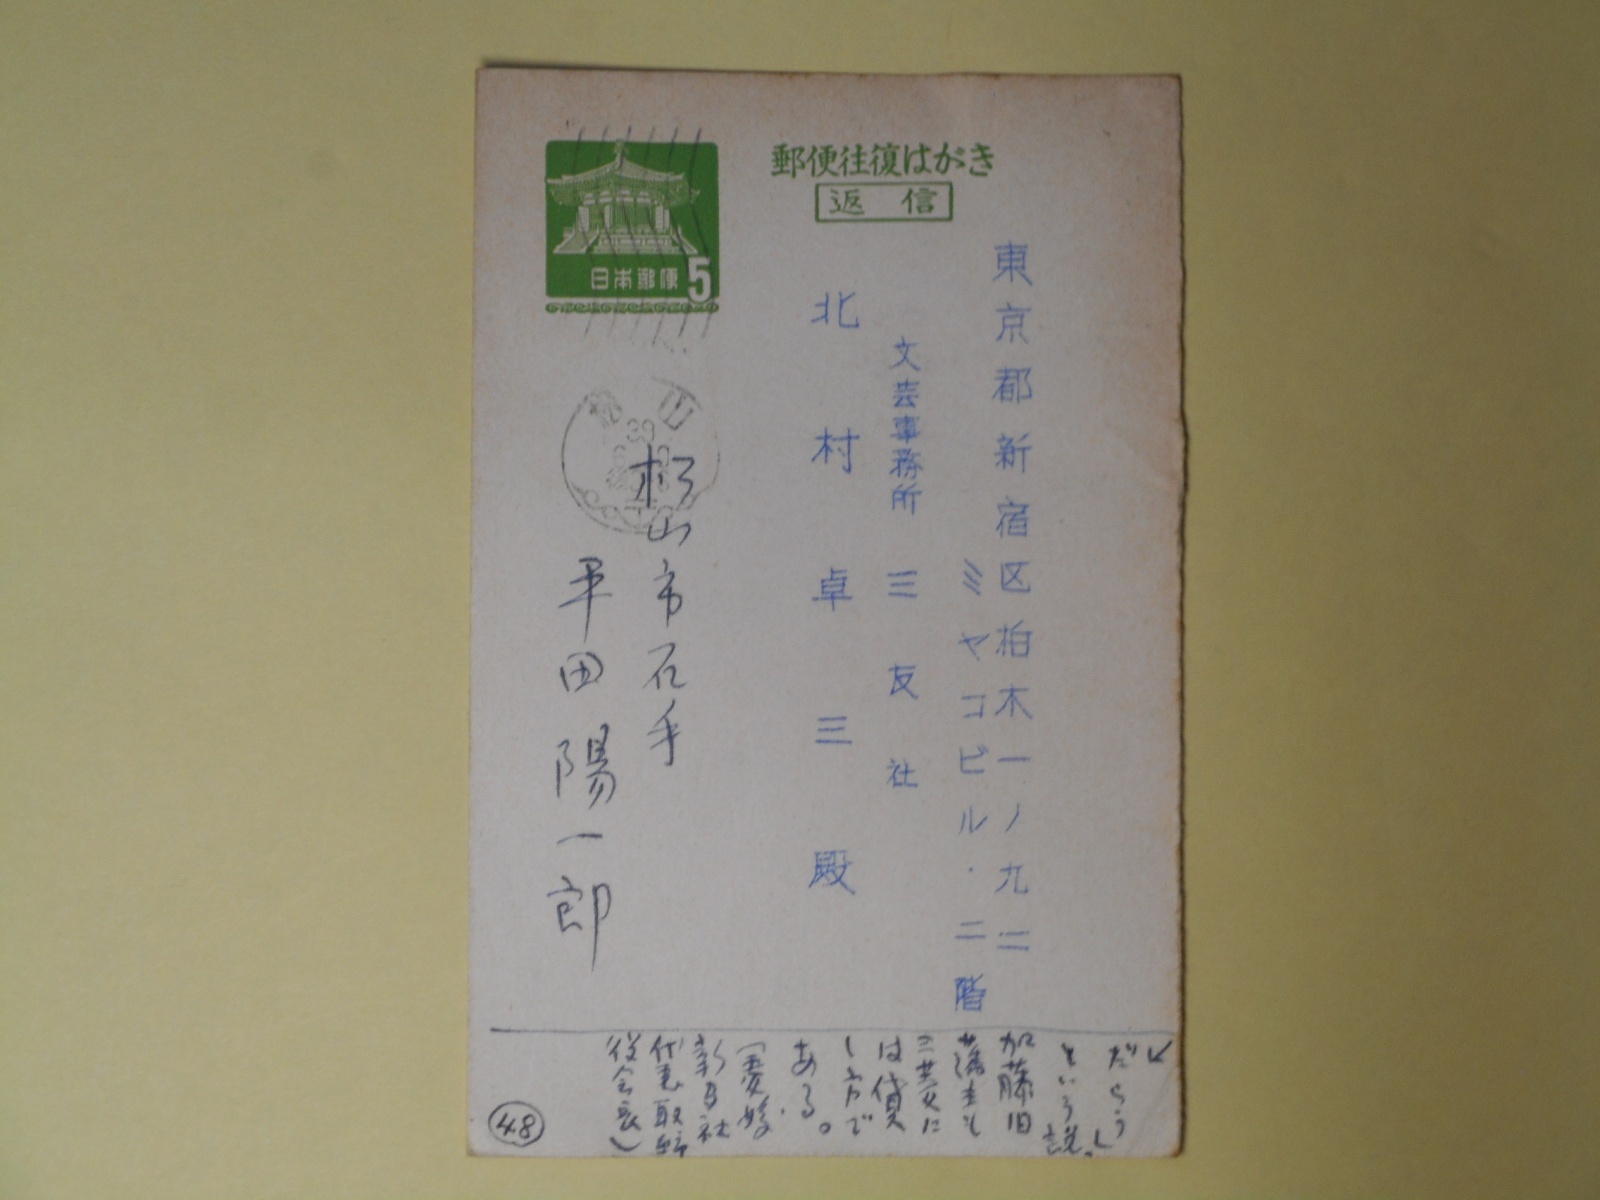 郵便往復はがき
返信
日本郵便
5
東京都新宿区柏木一ノ九二
ミヤコビル・二階
文芸事務所 三友社
北村卓三殿
松山
39
松山市石手
平田陽一郎
だらう」
といふ説。
加藤旧
藩主も
三菱に
は貸
し方で
ある。
(愛媛
新聞社
代表取締
役会長)
48